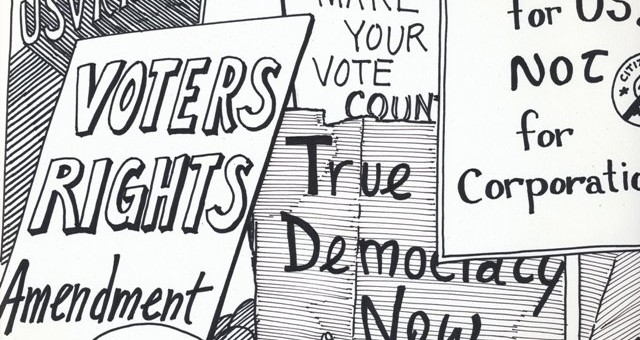 VOTERS
RIGHTS
Amendment
MAKE
YOUR
VOTE
COUNT
True
Democracy
Now
for US
NOT
for
Corporatio